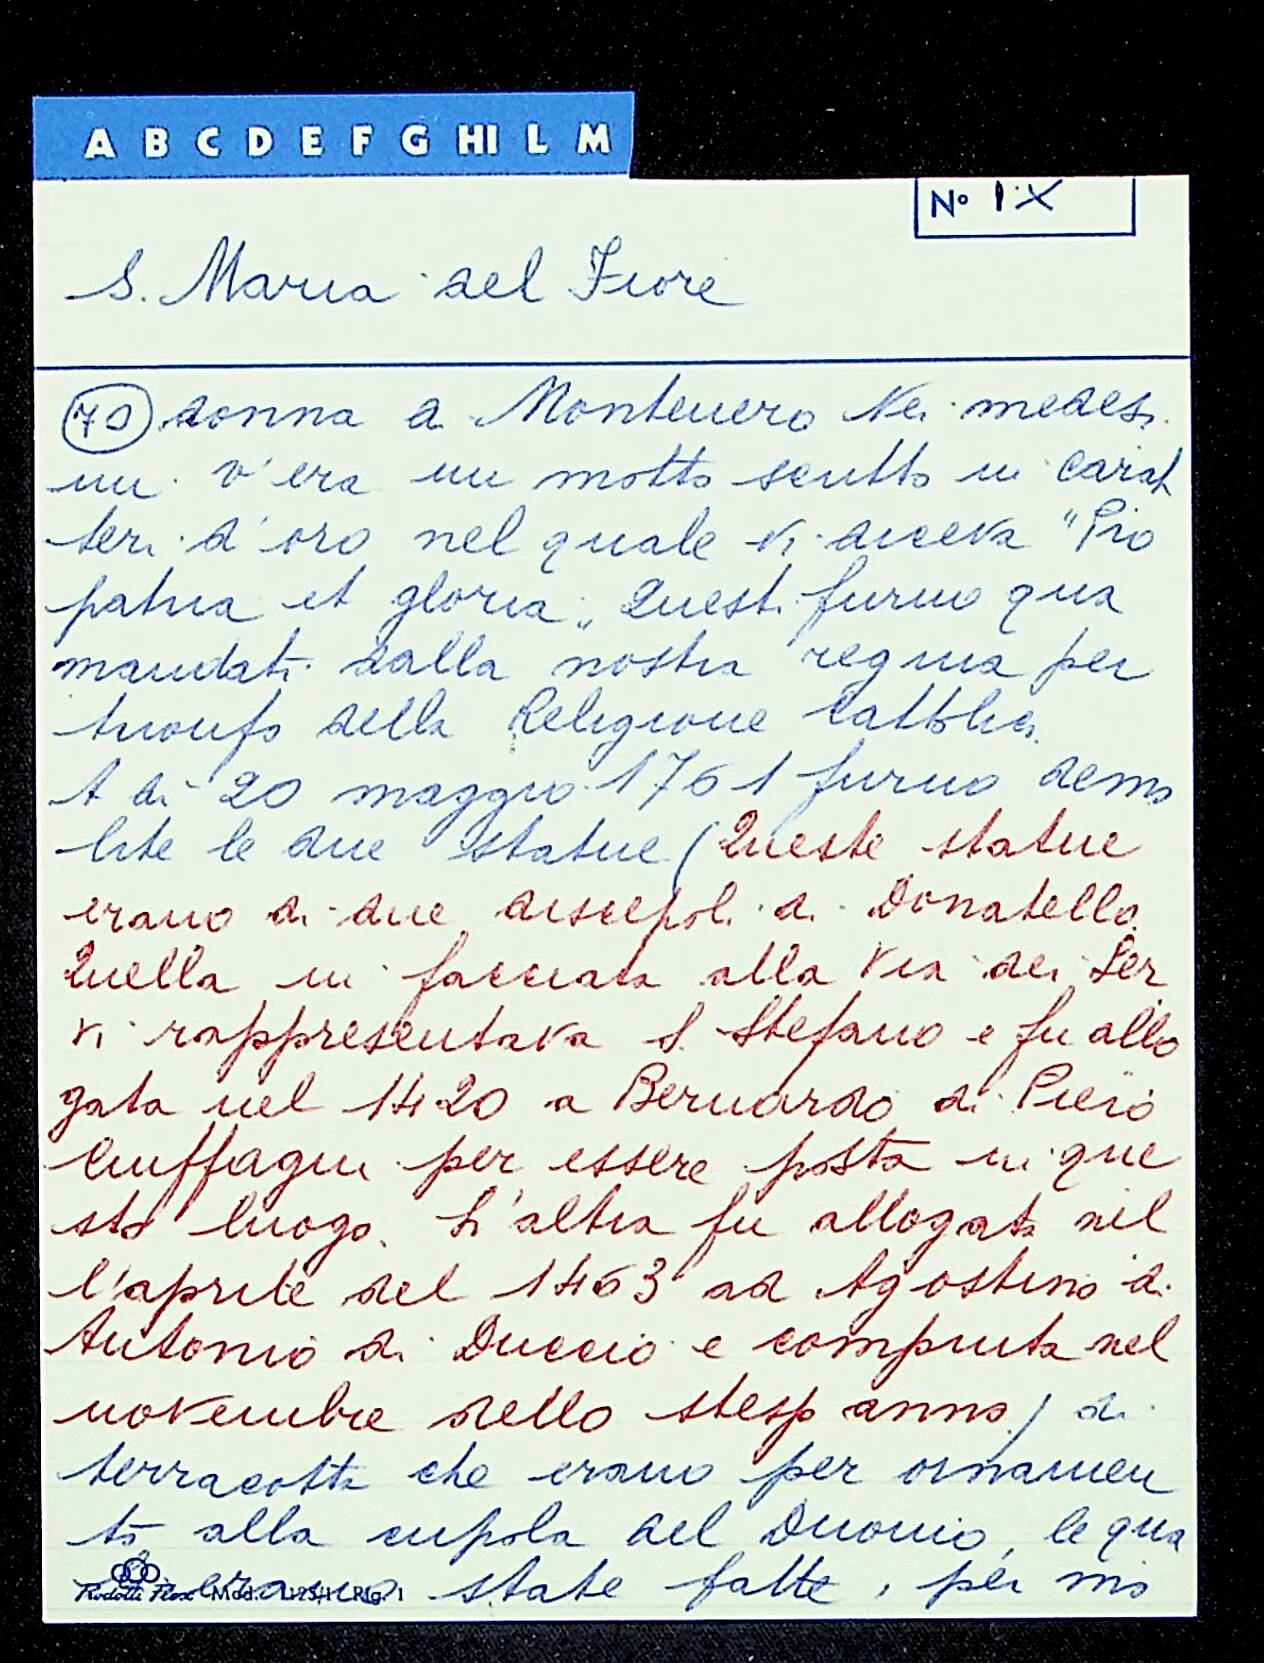 A B C D E F G HI L M
N° IX
S. Maria del Fiore
70 donna a Montenero Nei medesi
mi v'era un motto scritto in carat
teri d'oro nel quale vi diceva "Pro
patria et gloria„ Questi furno qua
mandati dalla nostra regina per
trionfo della Religione Cattolica.
A di 20 maggio 1761 furno demo
lite le due statue (Queste statue
erano di due discepoli di Donatello.
Quella in facciata alla Via dei Ser
vi rappresentava S. Stefano e fu allo
gata nel 1420 a Bernardo di Piero
Ciuffagni per essere posta in que
sto luogo. L'altra fu allogata nel
l'aprile del 1463 ad Agostino di
Antonio di Duccio e compiuta nel
novembre dello stesso anno) di
terracotta che erano per ornamen
to alla cupola del Duomo, le qua
erano state fatte, per mo
Mod.